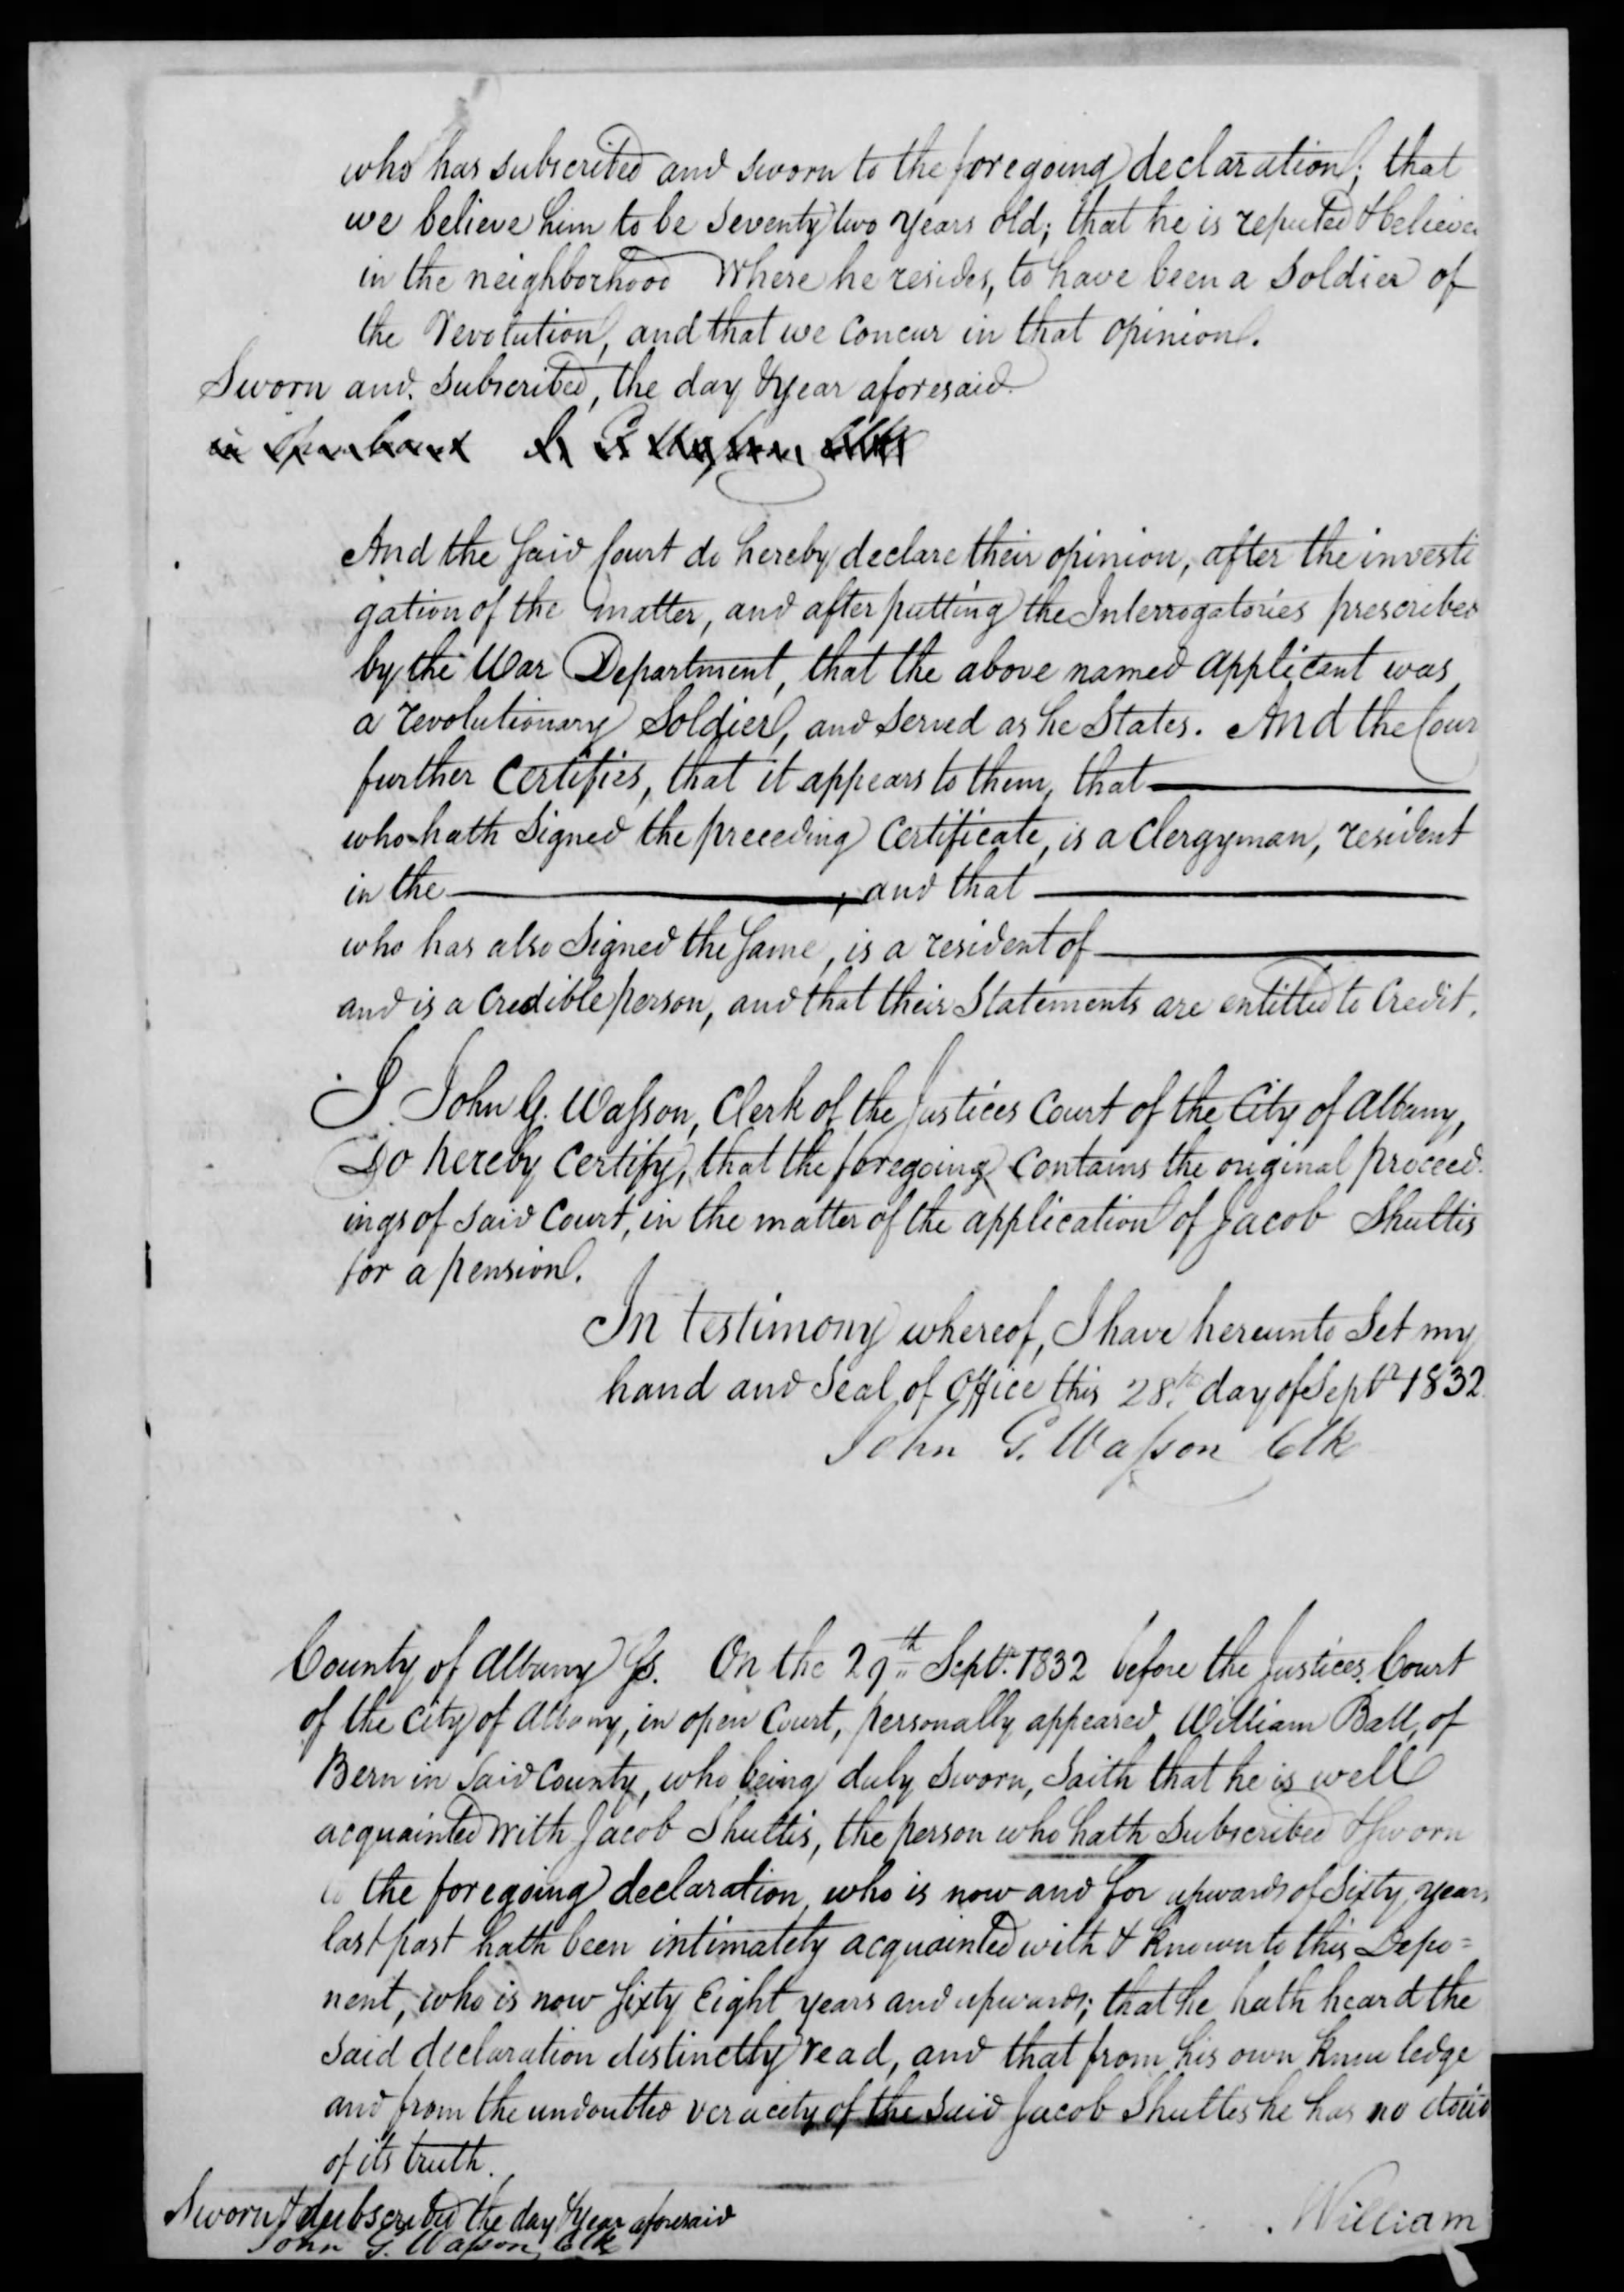 who has subscribed and sworn to the foregoing declaration; that
we believe him to be seventy two years old; that he is reputed & believed
in the neighborhood Where he resides, to have been a soldier of
the revolution, and that we concur in that opinion.
Sworn and subscribed, the day & year aforesaid
And the said Court do hereby declare their opinion, after the investi
gation of the matter, and after putting the Interrogatories prescribed
by the War Department, that the above named applicant was
a revolutionary Soldier, and served as he States. And the Cour
further Certifies, that it appears to them, that
who hath Signed the preceding Certificate, is a Clergyman, resident
in the , and that
who has also Signed the Same, is a resident of
and is a Credible person, and that their Statements are entitled to Credit.
I John G. Wasson, Clerk of the Justices Court of the City of Albany,
Do hereby Certify, that the foregoing Contains the original proceed
ings of said Court, in the matter of the application of Jacob Shultis
for a pension.
In testimony whereof, I have hereunto Set my
hand and Seal of Office this 28th day of Septr 1832
John G. Wasson Clk
County of Albany Ss. On the 29th Septr. 1832 before the Justices Court
of the City of Albany, in open Court, personally appeared William Ball, of
Bern in Said County, who being duly Sworn, Saith that he is well
acquainted with Jacob Shultis, the person who hath Subscribed & sworn
to the foregoing declaration, who is now and for upwards of Sixty years
last past hath been intimately acquainted with & known to this Depo=
nent, who is now Sixty Eight years and upwards; that he hath heard the
said declaration distinctly read, and that from his own knowledge
and from the undoubted veracity of the said Jacob Shultes he has no
of its truth.
Sworn & subscribed the day & year aforesaid
John G. Wasson, Clk
William